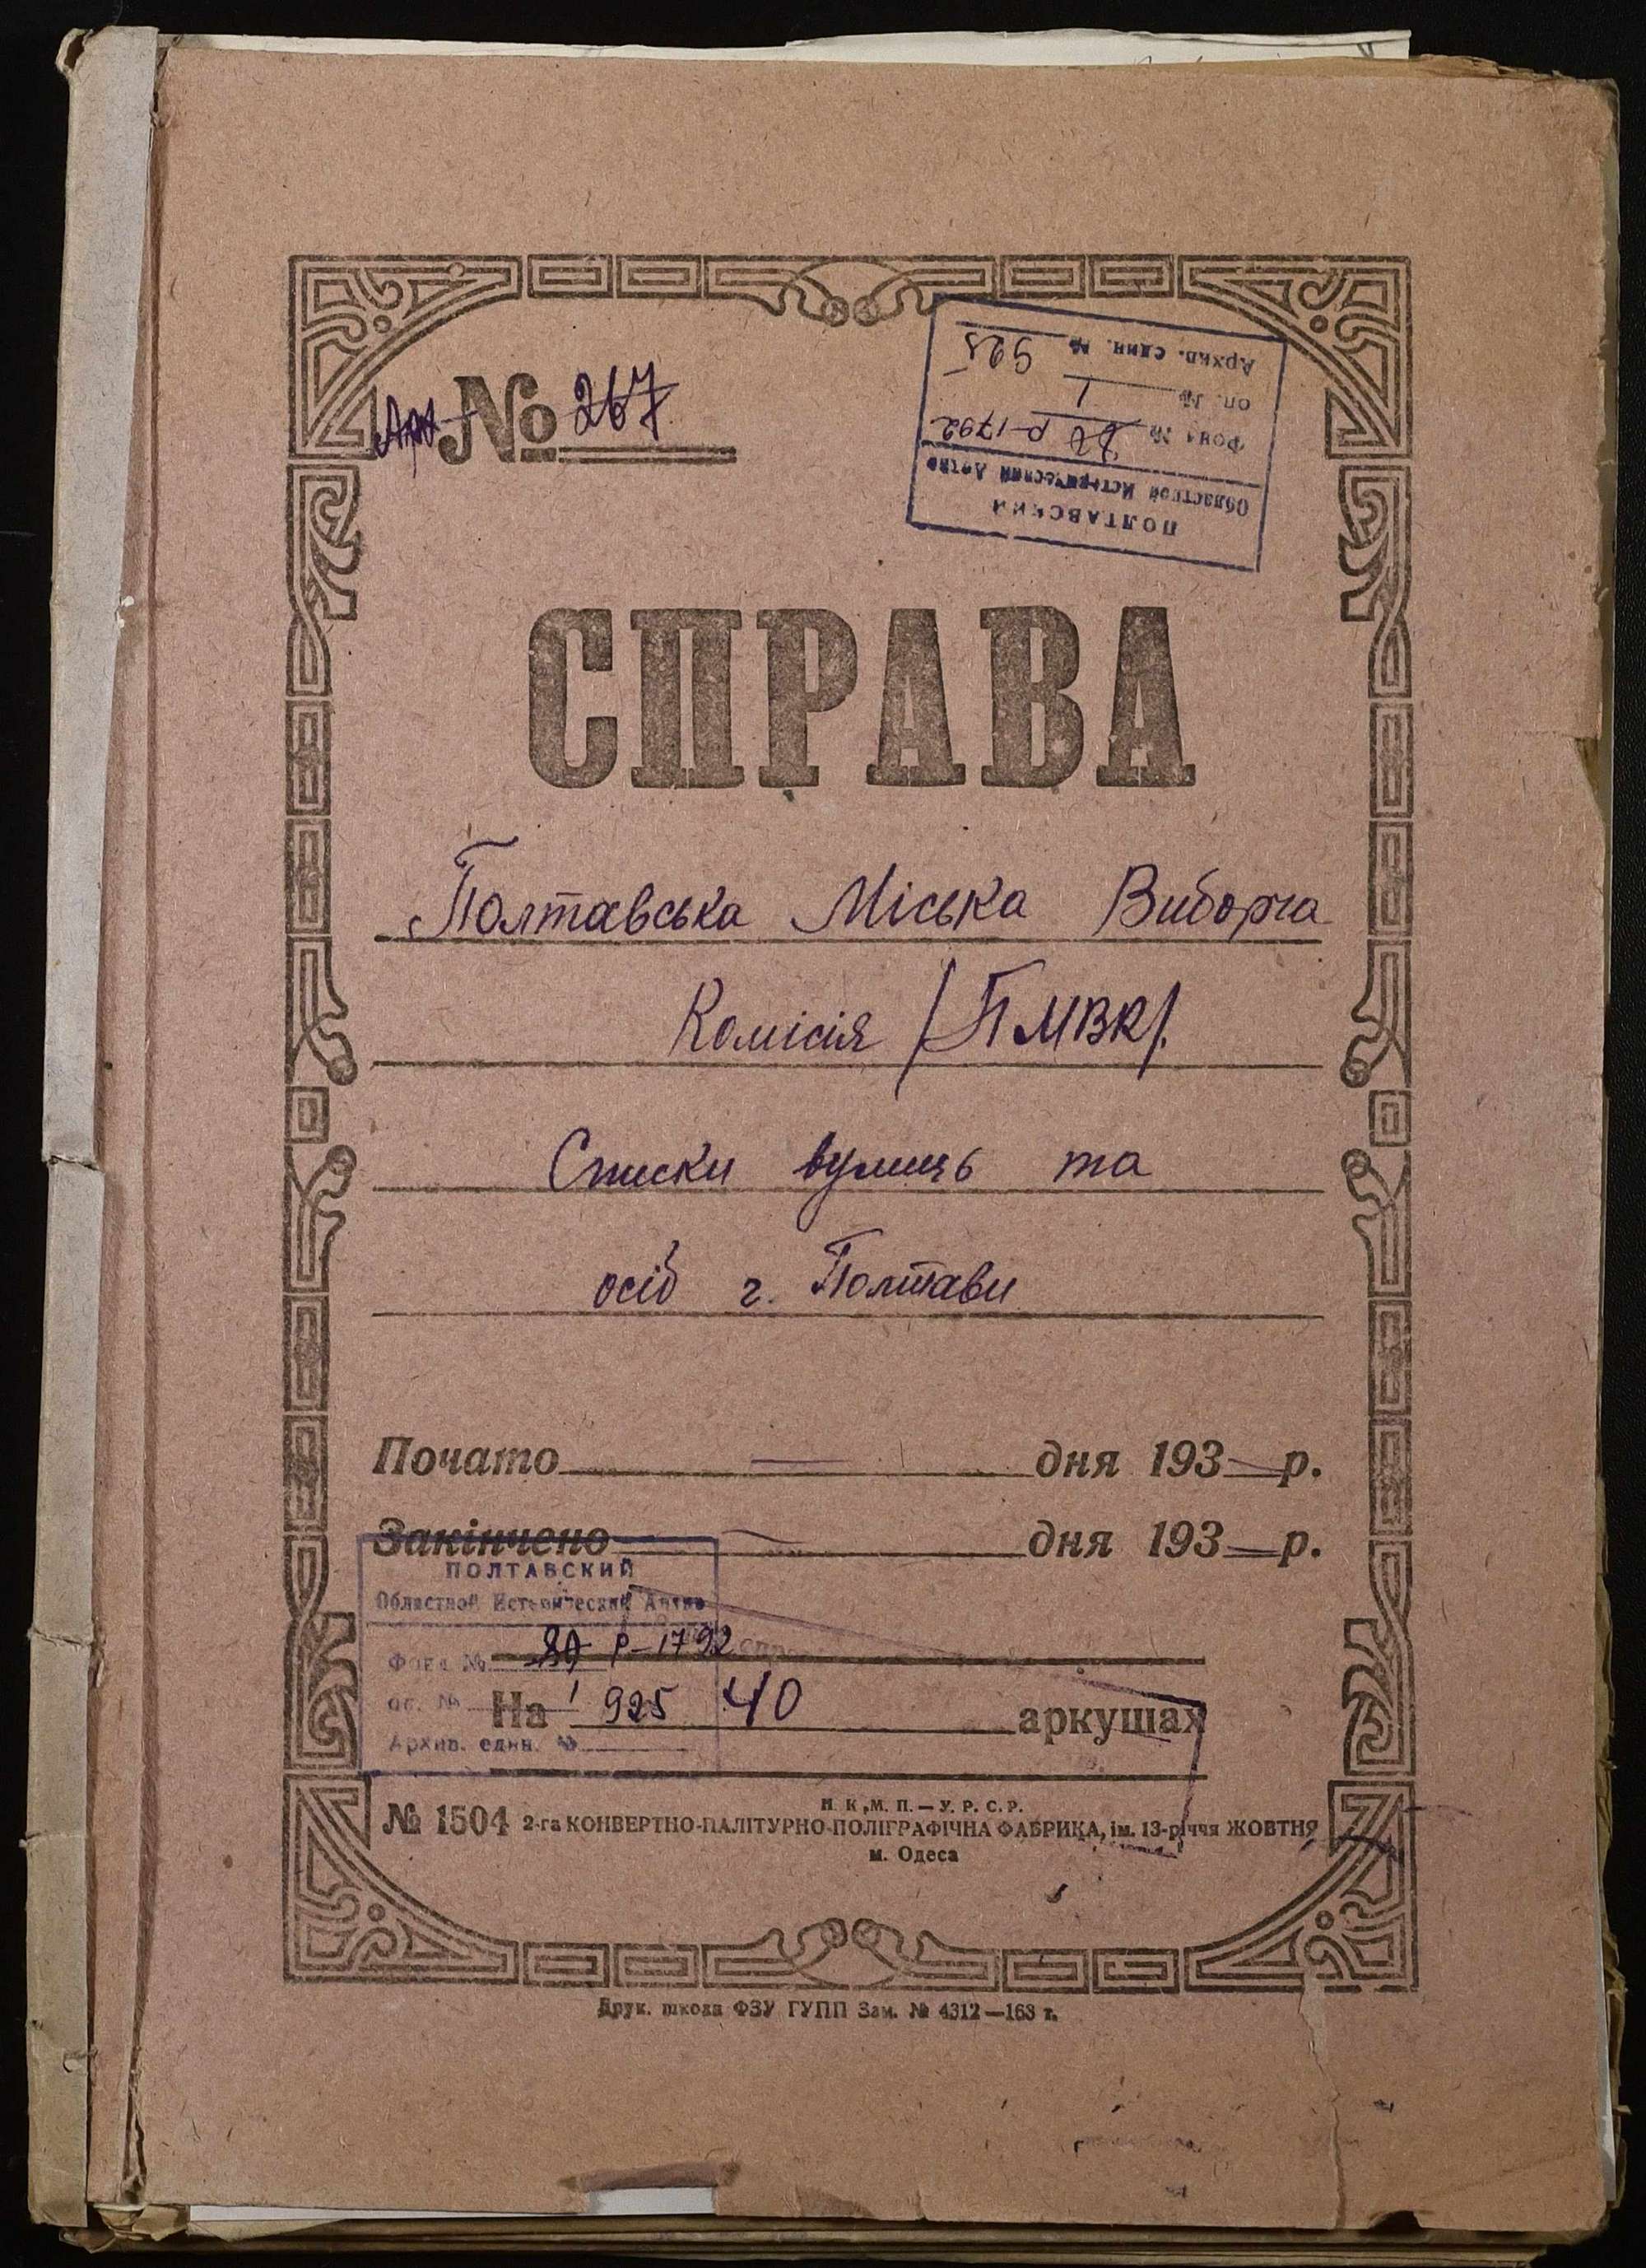 № 267
ПОЛТАВСКИЙ
Областной Исторический Архив
Фонд № р-1792
оп. № 1
Архив. един. № 925
СПРАВА
Полтавська Міська Виборча
Комісія /ПМВК/.
Списки вулиць та
осіб г. Полтави
Почато — дня 193— р.
Закінчено — дня 193— р.
ПОЛТАВСКИЙ
Областной Исторический Архив
Фонд № 89 Р-1792
оп. № 1
Архив. един. № 925
На 40 аркушах
Н. К. М. П. — У. Р. С. Р.
№ 1504 2-га КОНВЕРТНО-ПАЛІТУРНО-ПОЛІГРАФІЧНА ФАБРИКА, ім. 13-річчя ЖОВТНЯ
м. Одеса
Друк. школа ФЗУ ГУПП Зам. № 4312—163 т.